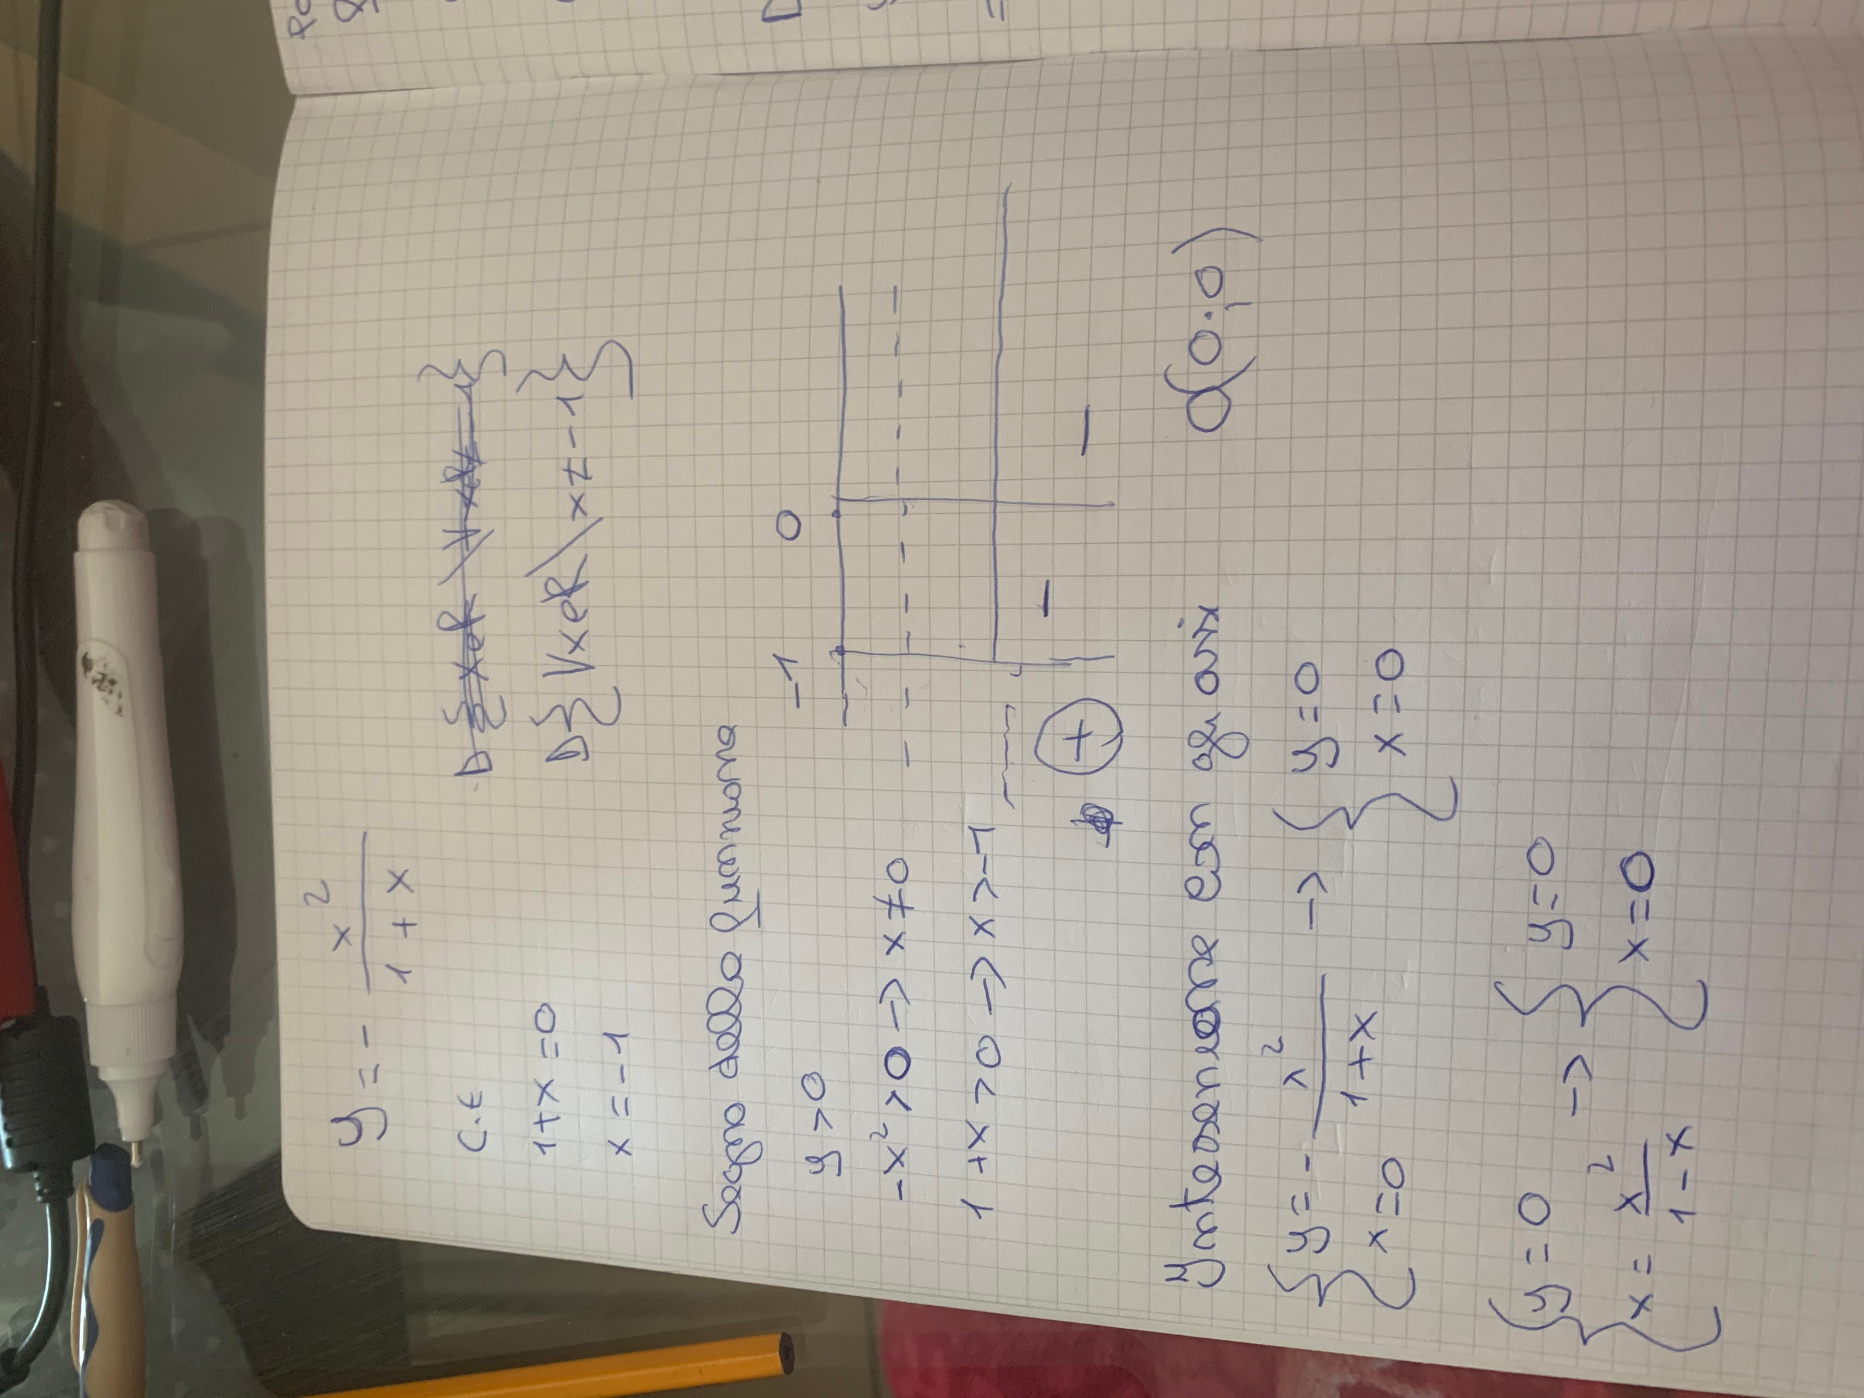 y = - x² / 1 + x
C.E
D {∀x∈R \ x≠-1}
1+x=0
x=-1
Segno della funzione
y>0
-1 0
-x²>0 -> x≠0
1+x>0 -> x>-1
+ - -
Intersezione con gli assi
O(0,0)
{ y = - x² / 1+x -> { y=0
x=0 x=0
{ y=0 -> { y=0
x = x² / 1-x x=0